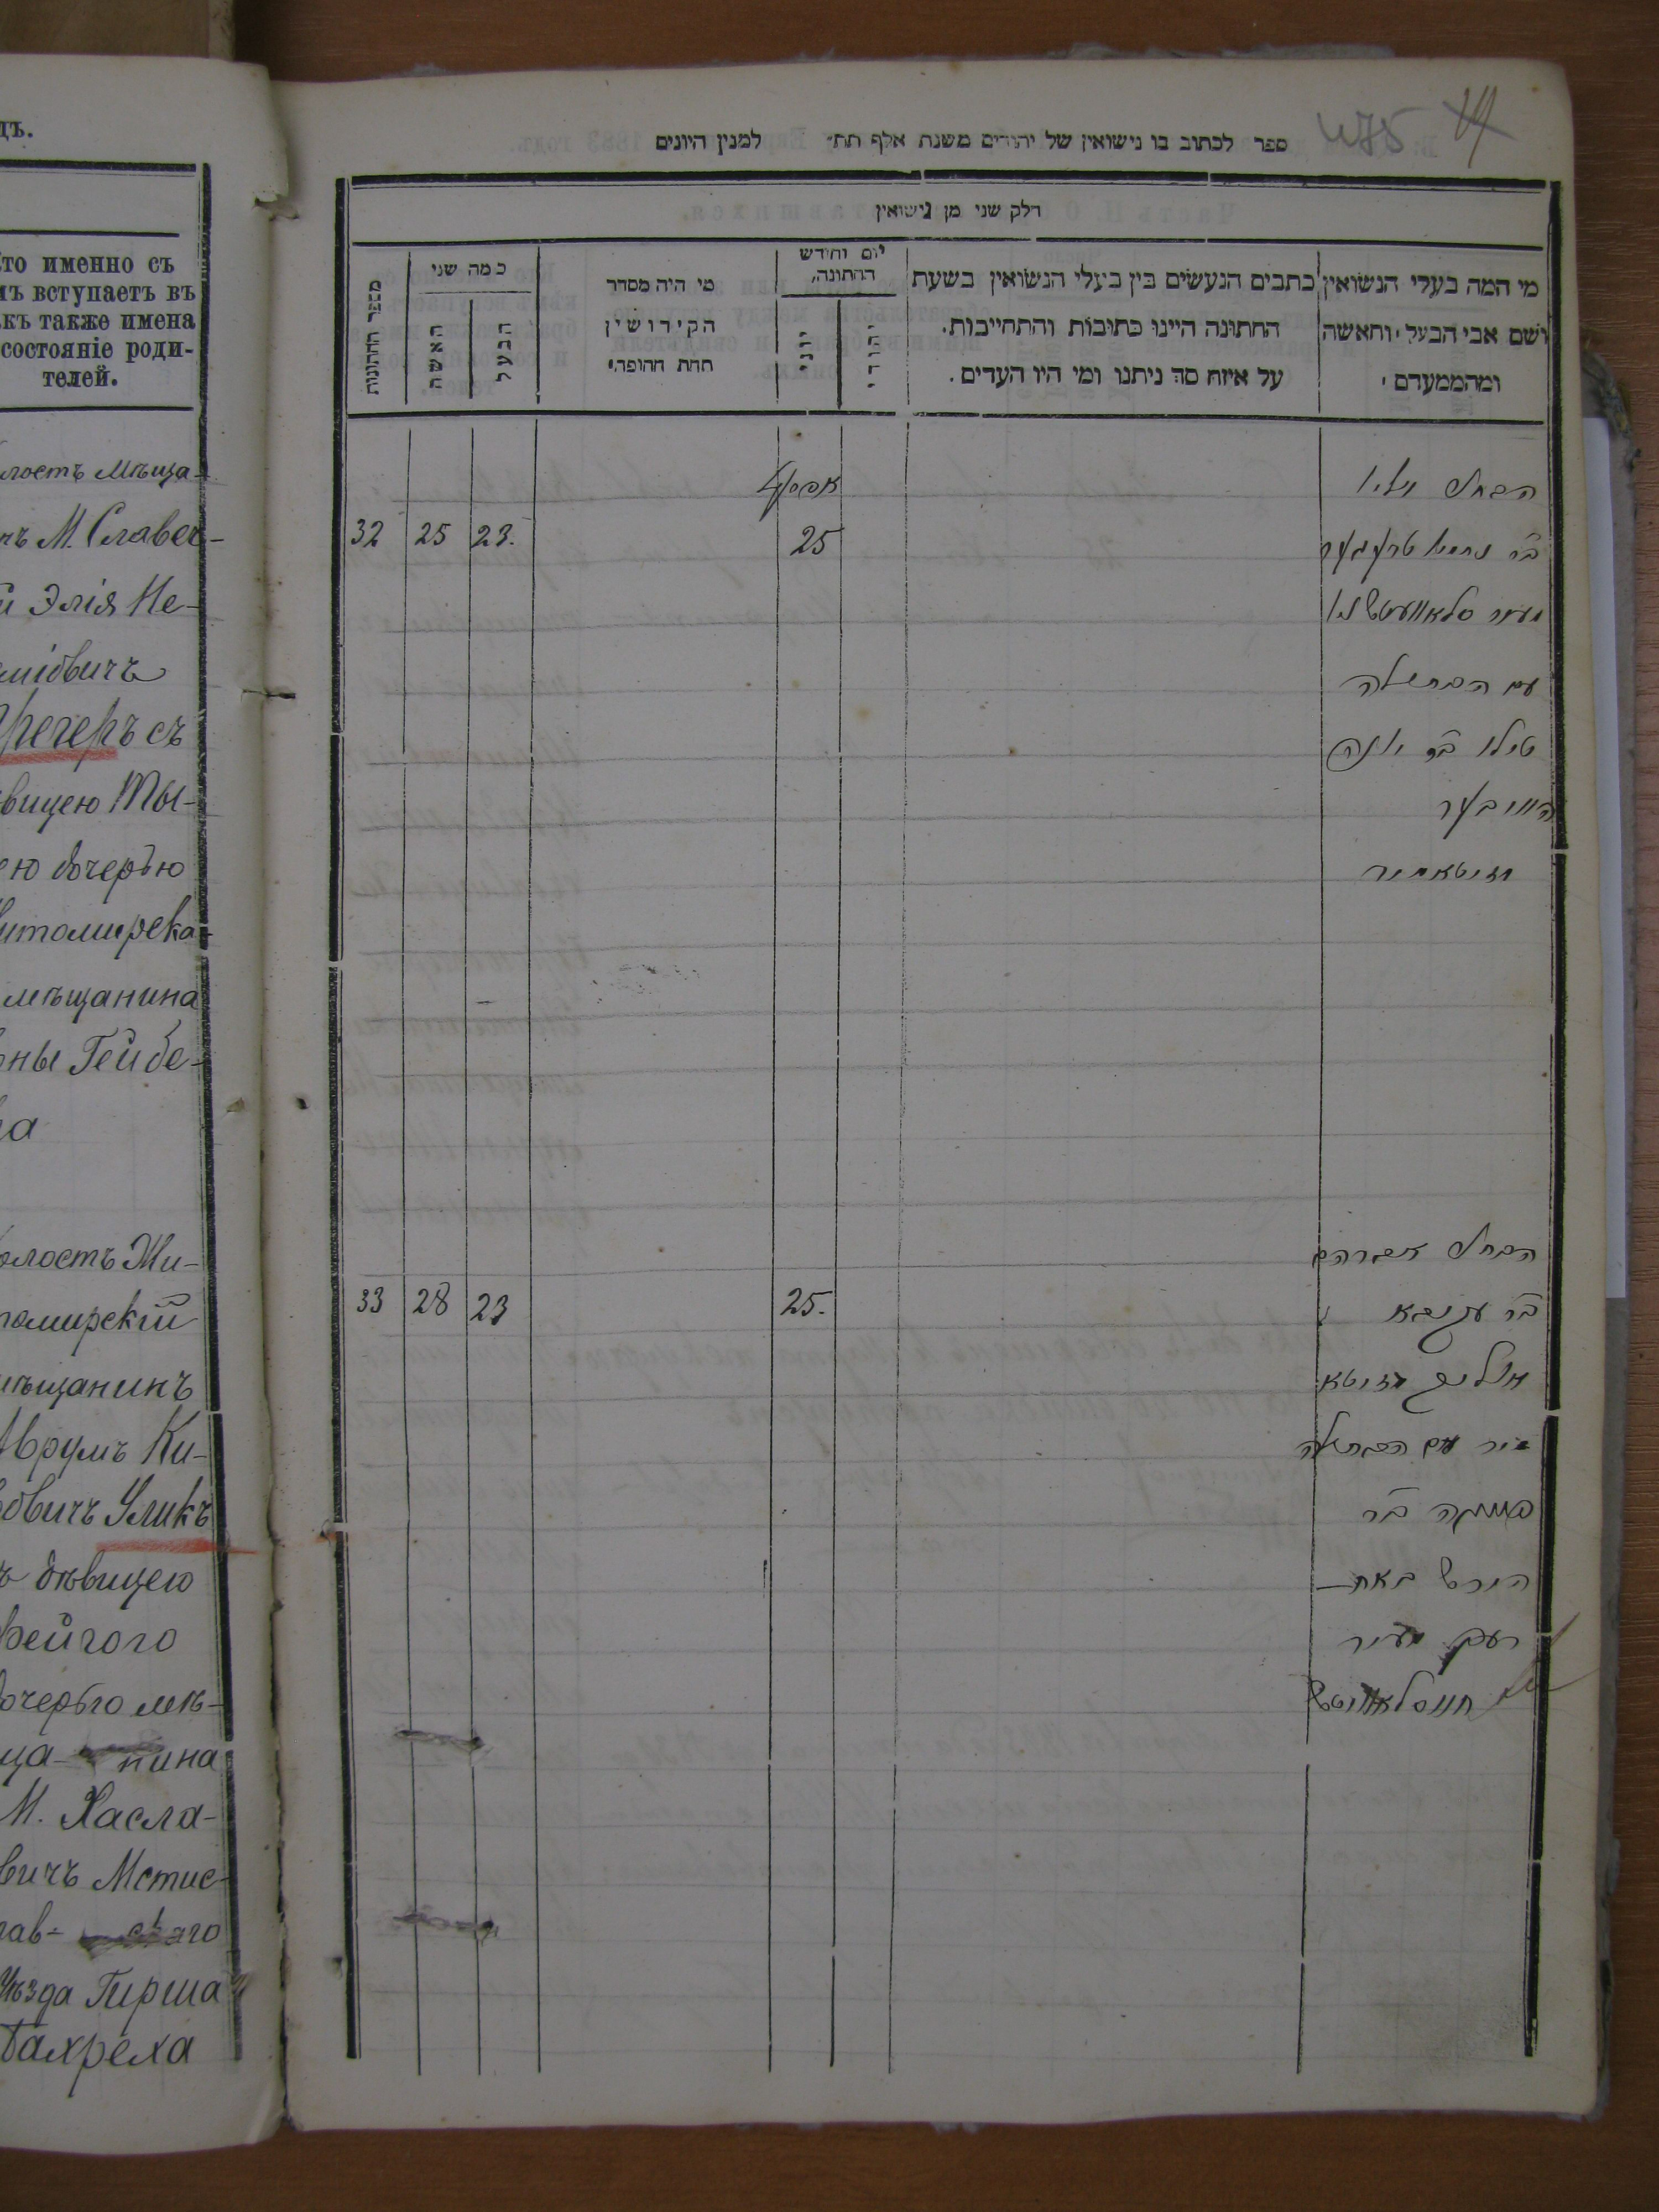 дъ.
то именно съ
мъ вступаетъ въ
акъ также имена
состояніе роди-
телей.
лостъ Мѣща-
нъ М. Славеч-
й Элія Не-
міовичъ
Трегеръ съ
вицею Ты-
ею дочерью
итомирска-
мѣщанина
оны Гейбе-
ра
олостъ Жи-
томирскій
мѣщанинъ
Аврумъ Ки-
овичъ Уликъ
ъ дѣвицею
Фейгого
дочерью мѣ-
ща- нина
М. Хасла-
вичъ Мстис-
лав- скаго
Уѣзда Гирша
Бахрeха
475
ספר לכתוב בו נישואין של יהודים משנת אלף תת״ למנין היונים
חלק שני מן נישואין
מי המה בעלי הנשואין
ושם אבי הבעל והאשה
ומהממעדם
כתבים הנעשים בין בעלי הנשואין בשעת
החתונה היינו כתובות והתחייבות.
על איזה סך ניתנו ומי היו העדים.
יום וחודש
החתונה,
יהודי
יוני
מי היה מסדר
הקידושין
תחת החופה.
כמה שני
הבעל
האשה
מספר החתונות
הבחור
בר נחמי׳ טרעגער
25
23.
25
32
מעיר סלאוועטשנו
עם הבתולה
טילי בר יונה
הייבער
זיטאמיר
הבחור אברהם
בר עקיבא
25.
23
28
33
אוליק זיטא
מיר עם הבתולה
פייגה בר
הירש באח
רעך מעיר
חוסלאוויטש